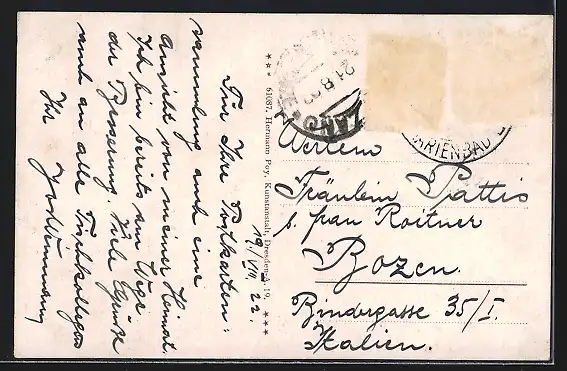 Für Ihre Postkarten=
sammlung auch eine
Ansicht von meiner Heimat.
Ich bin bereits am Wege
der Besserung. Viele Grüße
auch an alle Tischkollegen
Ihr
19/VIII. 22.
*** 61687. Hermann Poy, Kunstanstalt, Dresden-A. 19. ***
21.8.22
MARIENBAD
Wertem
Fräulein Pattis
p. frau Roitner
Bozen.
Bindergasse 35/I.
Italien.